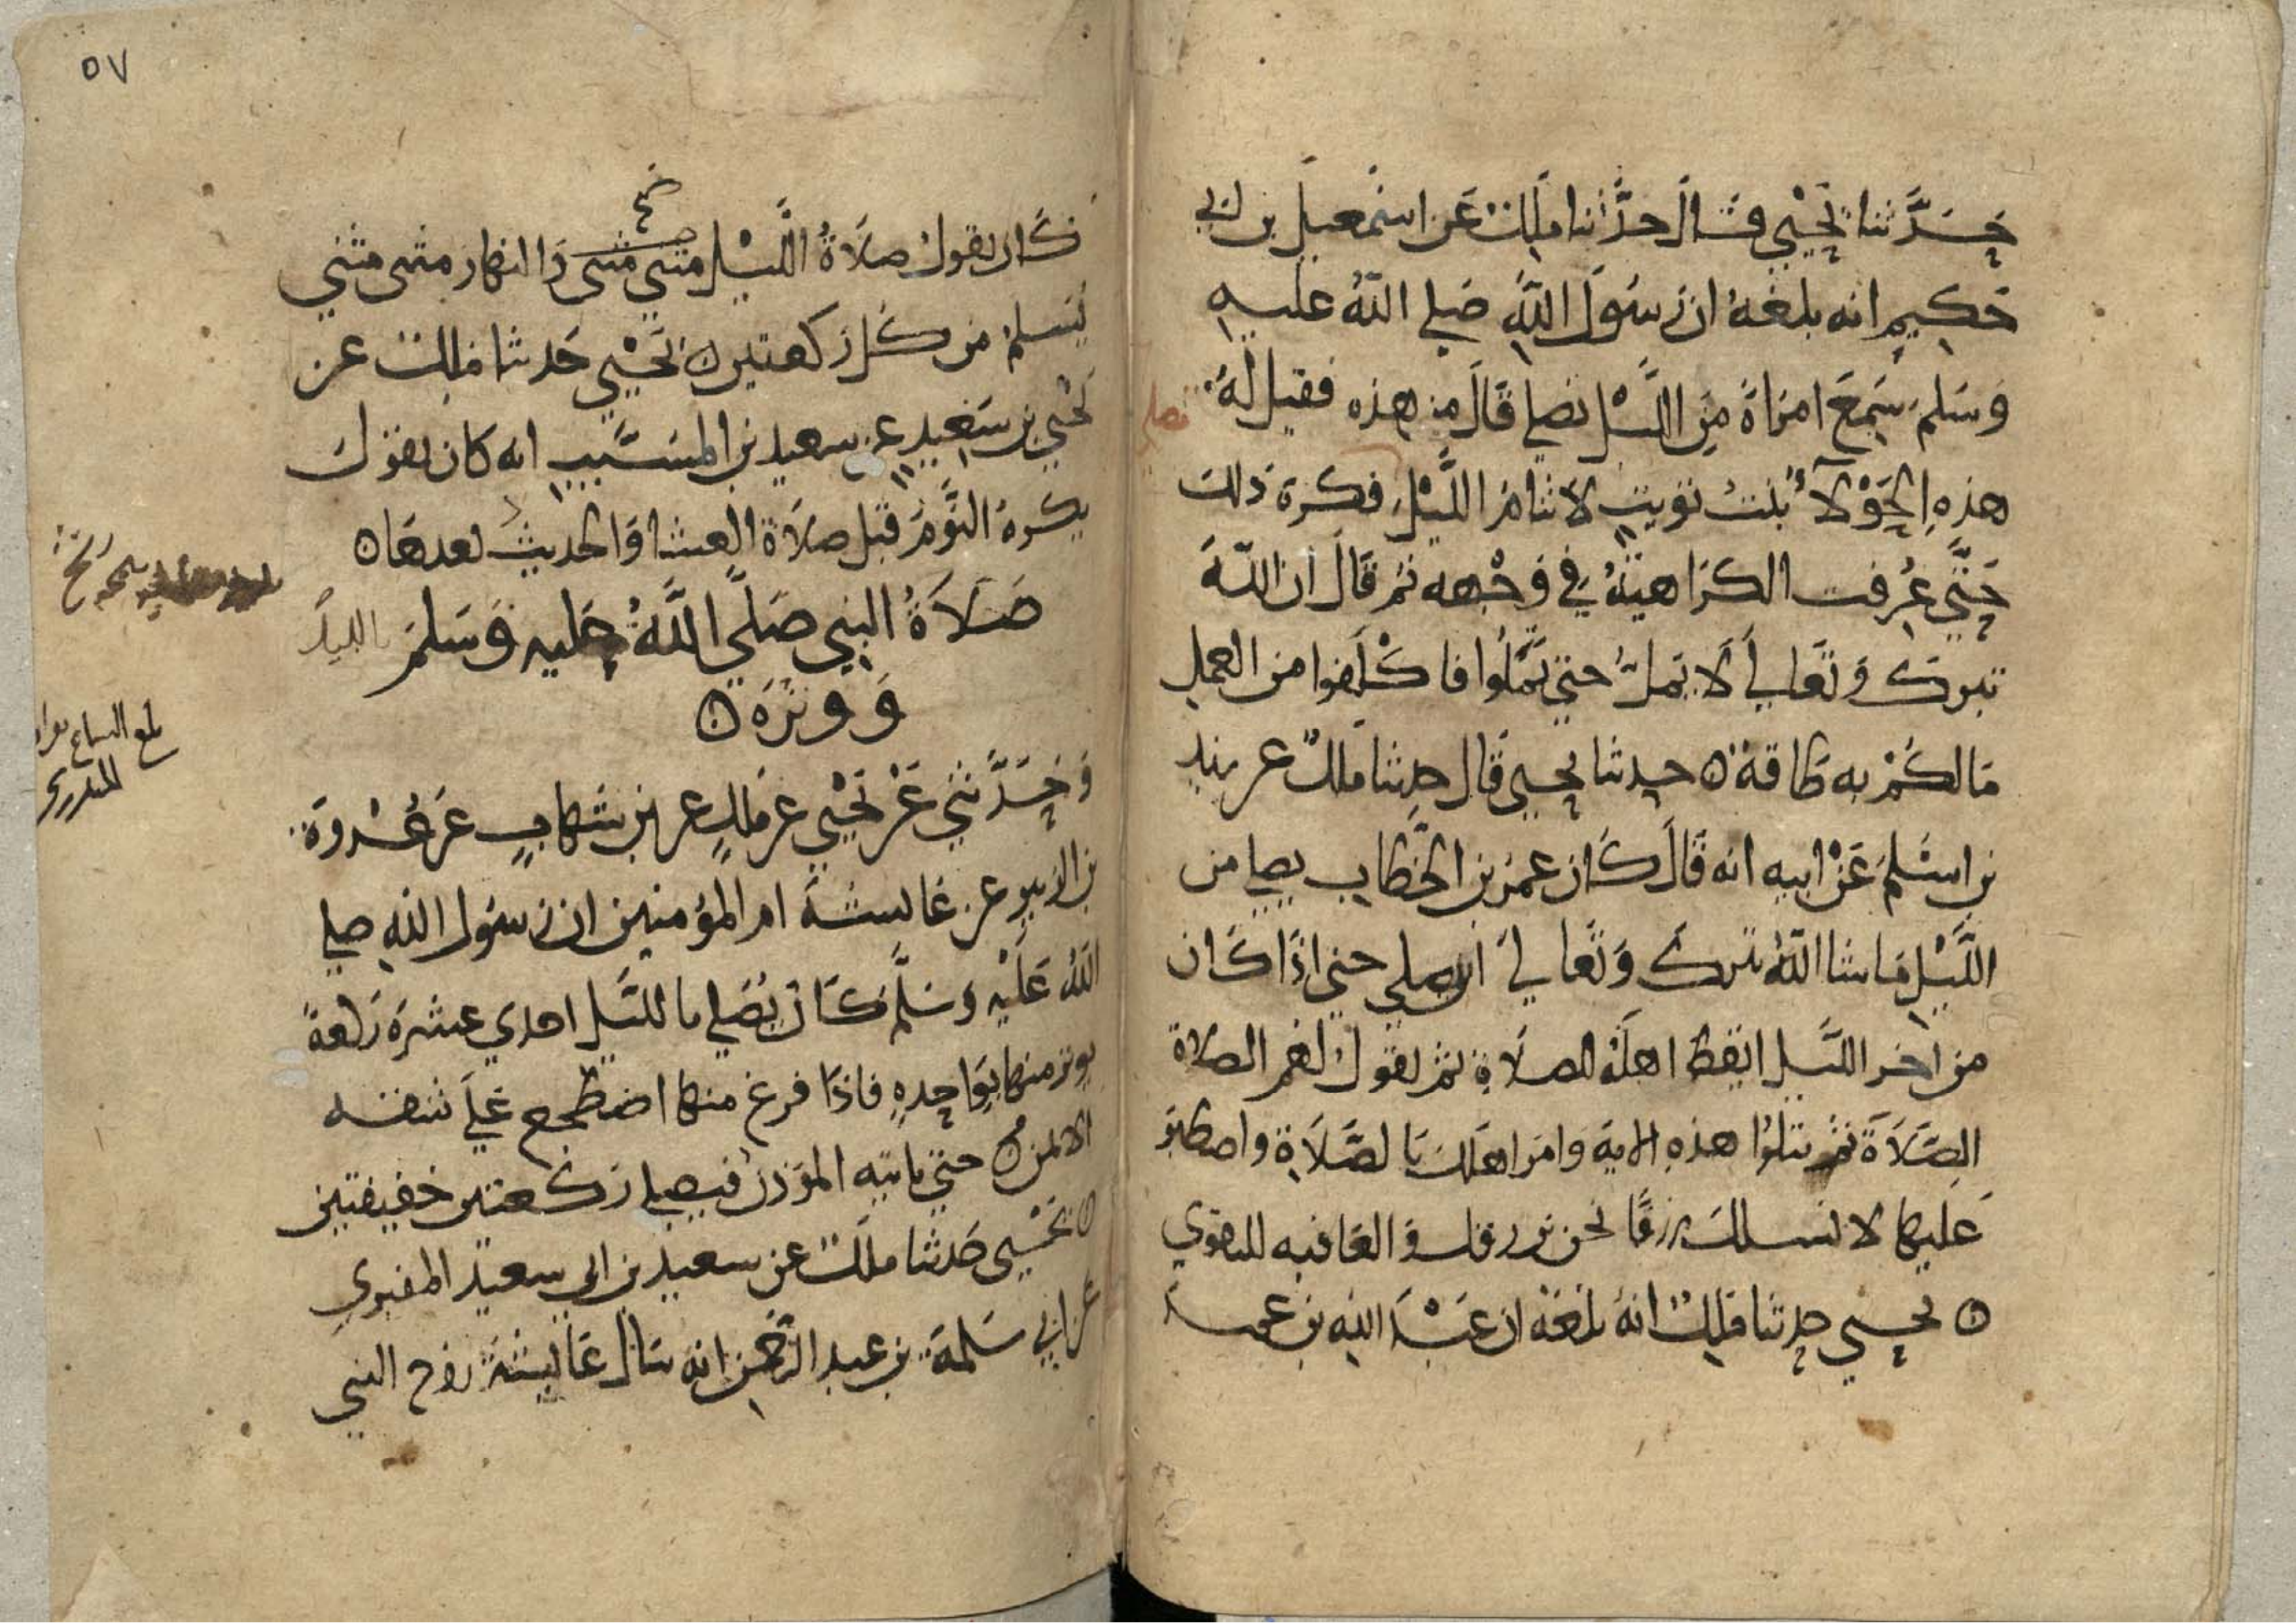 حَدَّثنا يَحْيَى قَالَ حدَّثنا ملِكٌ عَن اسْمعيل بن ابي
حَكِيمٍ انه بلغهُ ان رسُولَ اللهِ صَلى اللهُ عليه
وَسَلمَ سَمِعَ امرَاةً مِنَ اللَّيْل تصلي قَالَ من هذه فقيل لهُ
تصلي
هذهِ الحَوْلآءُ بنتُ تويتٍ لا تنامُ اللَّيْلَ فكرهَ ذلك
حَتَّى عُرِفت الكرَاهيَةُ في وَجْهه ثم قَالَ ان اللهَ
تبرك وَتَعَالى لَا يَمَلُّ حتى تَمَلُّوا فاكْلَفوا من العمل
مَا لكُمْ به طَاقة ه حدثنا يحيى قَال حدثنا ملكٌ عن زيد
بن اسْلمَ عَنْ ابيه انه قَالَ كَان عمرُ بن الخطاب يصلي من
اللَّيْلِ مَا شا اللهُ تبرك وَتَعَالىَ ان يصلي حتى اذَا كَان
من اخر اللَّيل ايقظ اهلَهُ للصلَاةِ ثم يقول لهم الصلاة
الصَّلَاةَ ثم يتلوا هذهِ الايةَ وَامُر اهلكَ بالصَّلَاةِ واصطبر
عَليها لا نسلكَ رزقًا نحن نرزقك وَالعَاقبه للتقوي
ه يحيى حدثنا ملكٌ انهُ بلغَهُ ان عَبْدَ اللهِ بن عمر
٥٧
كَان يقول صلَاةُ اللَّيْل مثنى مثنى وَالنهار مثنى مثنى
يُسلمُ من كُل ركعتين ه يَحْيى حَدثنا ملك عن
يَحْيى بن سَعيدٍ عن سعيد بن المسَيَّبِ انه كان يقول
يكرهُ النَّوْمَ قبْل صلَاةِ العِشا وَالحديثُ بعدهَا ه
صَلَاةُ النبي صَلَّى اللَّهُ عليه وَسَلمَ بالليل
وَوِترَهُ ه
وَحَدَّثني عَنْ يَحْيى عن مَلكٍ عن ابن شهابٍ عَن عُرْوَةَ
بن الزبيرِ عن عَايشةَ ام المؤمنين ان رسُول اللهِ صلي
اللهُ عَلَيْهِ وَسَلَّم كَانَ يُصَلي بالليَّل احدي عشرَةَ ركعةً
يوتر منها بوَاحِدةٍ فاذَا فرغ منها اضطجع عَلَى شقه
الايمن ه حتى ياتيه المؤَذنُ فيصلي ركعتين خفيفتين
ه يَحْيى حَدثنا ملَك عن سعيد بن ابي سعيد المقبري
عن ابي سَلمَة بن عبد الرَّحْمن انه سَال عَايشةَ زوج النبي
بلغ السماع بقراه